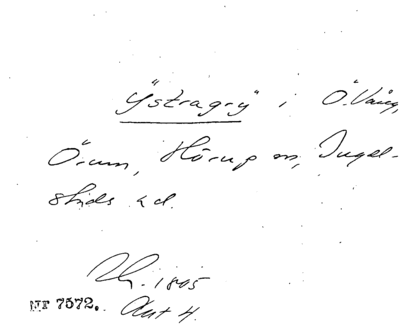 "Ystragry" i Ö. Vång,
Örum, Hörup sn, Ingel-
stads hd.
Lh. 1805
NT 7572. Akt 4.